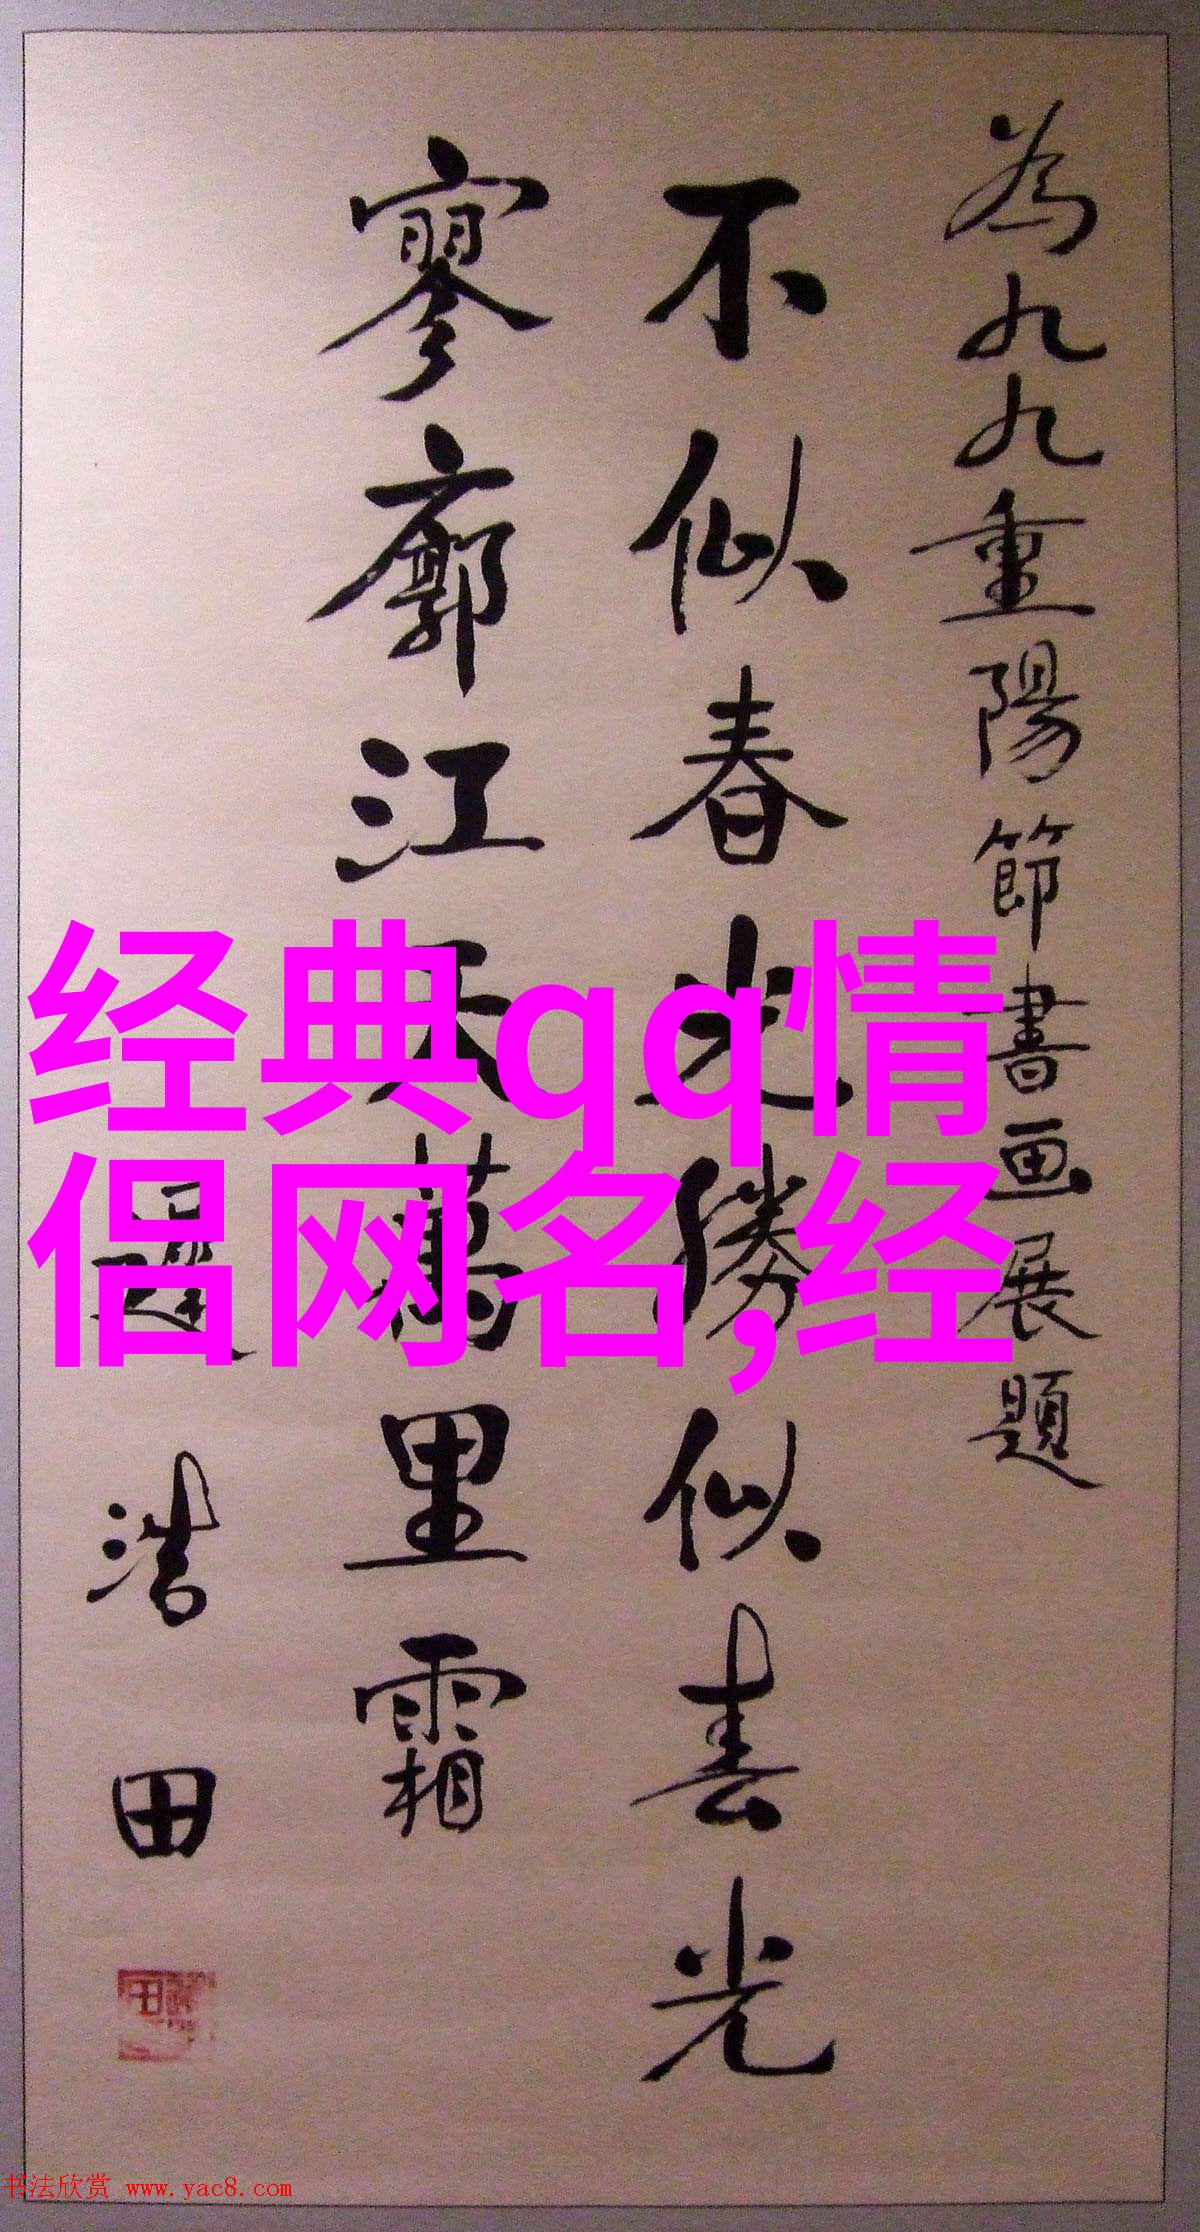 為九九重陽節書画展題
不似春光勝似春光
寥廓江天萬里霜
浩田
经典qq情
侣网名,经
书法欣赏 www.yac8.com